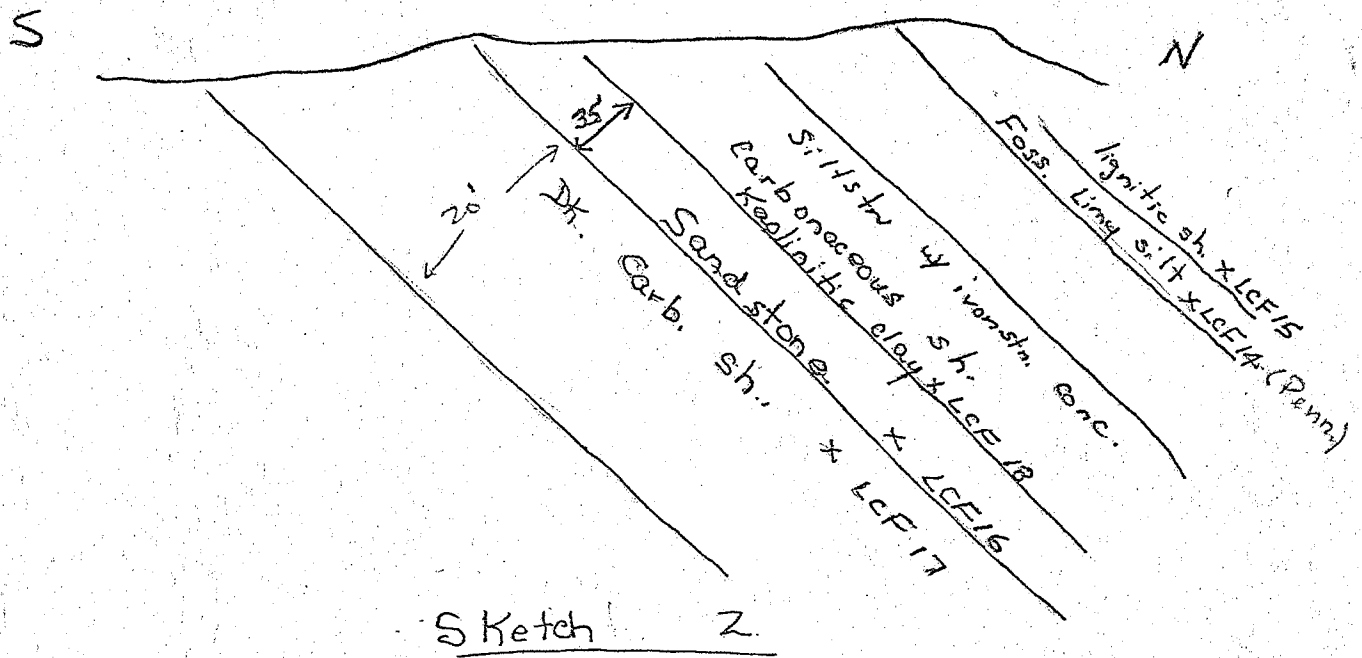 S
N
35'
20'
Dk. Carb. sh. x LCF 17
Sandstone x LCF16
Kaolinitic clay x LCF 18
Carbonaceous sh.
Siltstn w/ ironstn. conc.
Foss. Limy silt x LCF14 (Penn)
lignitic sh. x LCF15
Sketch 2.